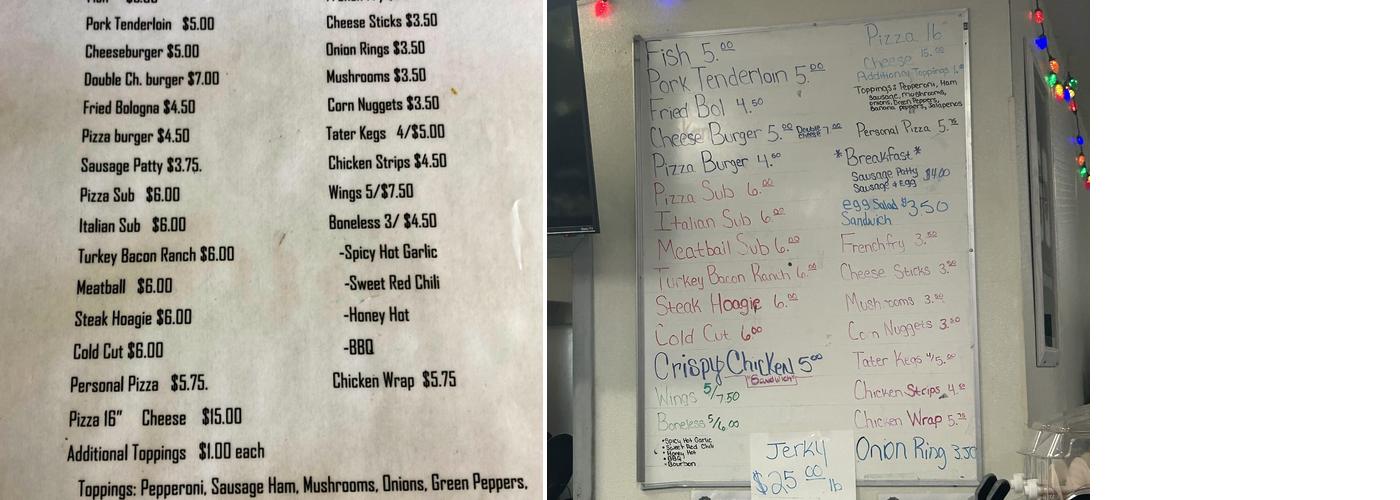 Pork Tenderloin $5.00
Cheeseburger $5.00
Double Ch. burger $7.00
Fried Bologna $4.50
Pizza burger $4.50
Sausage Patty $3.75.
Pizza Sub $6.00
Italian Sub $6.00
Turkey Bacon Ranch $6.00
Meatball $6.00
Steak Hoagie $6.00
Cold Cut $6.00
Personal Pizza $5.75.
Pizza 16" Cheese $15.00
Additional Toppings $1.00 each
Toppings: Pepperoni, Sausage Ham, Mushrooms, Onions, Green Peppers,
Cheese Sticks $3.50
Onion Rings $3.50
Mushrooms $3.50
Corn Nuggets $3.50
Tater Kegs 4/$5.00
Chicken Strips $4.50
Wings 5/$7.50
Boneless 3/ $4.50
-Spicy Hot Garlic
-Sweet Red Chili
-Honey Hot
-BBQ
Chicken Wrap $5.75
Fish 5.00
Pork Tenderloin 5.00
Fried Bol 4.50
Cheese Burger 5.00 Double Cheese 7.00
Pizza Burger 4.50
Pizza Sub 6.00
Italian Sub 6.00
Meatball Sub 6.00
Turkey Bacon Ranch 6.00
Steak Hoagie 6.00
Cold Cut 6.00
Crispy Chicken 5.00
"Sandwich"
Wings 5/7.50
Boneless 5/6.00
•Spicy Hot Garlic
•Sweet Red Chili
•Honey Hot
•BBQ
•Bourbon
Pizza 16
Cheese 15.00
Additional Toppings
Toppings: Pepperoni, Ham
Sausage, Mushrooms,
Onions, Green Peppers,
Banana Peppers, Jalapenos
Personal Pizza 5.75
*Breakfast*
Sausage Patty
Sausage + Egg $4.00
egg Salad $3.50
Sandwich
Frenchfry 3.50
Cheese Sticks 3.50
Mushrooms 3.50
Corn Nuggets 3.50
Tater Kegs 4/5.00
Chicken Strips 4.50
Chicken Wrap 5.75
Onion Ring 3.50
Jerky
$25.00 lb